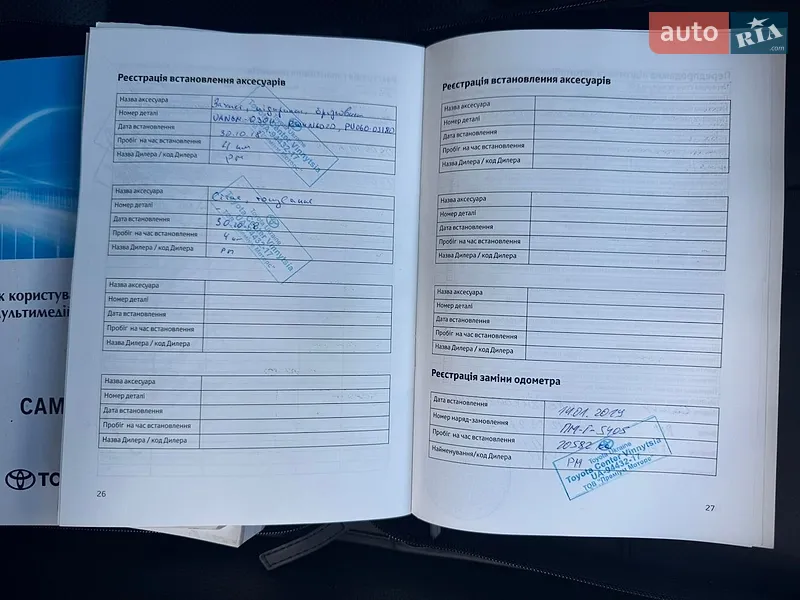 auto RIA.com
Реєстрація встановлення аксесуарів
Назва аксесуара
Номер деталі
Дата встановлення 30.10.18
Пробіг на час встановлення 4 км
Назва Дилера / код Дилера РМ
Назва аксесуара
Номер деталі
Дата встановлення 30.10.18
Пробіг на час встановлення 4 км
Назва Дилера / код Дилера РМ
Назва аксесуара
Номер деталі
Дата встановлення
Пробіг на час встановлення
Назва Дилера / код Дилера
Назва аксесуара
Номер деталі
Дата встановлення
Пробіг на час встановлення
Назва Дилера / код Дилера
26
Реєстрація встановлення аксесуарів
Назва аксесуара
Номер деталі
Дата встановлення
Пробіг на час встановлення
Назва Дилера / код Дилера
Назва аксесуара
Номер деталі
Дата встановлення
Пробіг на час встановлення
Назва Дилера / код Дилера
Назва аксесуара
Номер деталі
Дата встановлення
Пробіг на час встановлення
Назва Дилера / код Дилера
Реєстрація заміни одометра
Дата встановлення 14.01.2019
Номер наряд-замовлення ПМ-Г-5405
Пробіг на час встановлення 20582
Найменування/код Дилера РМ
Toyota Ukraine
Toyota Center Vinnytsia
UA-94432-17
ТОВ "Преміум Моторс"
27
к користув
ультимеді
CAM
TO